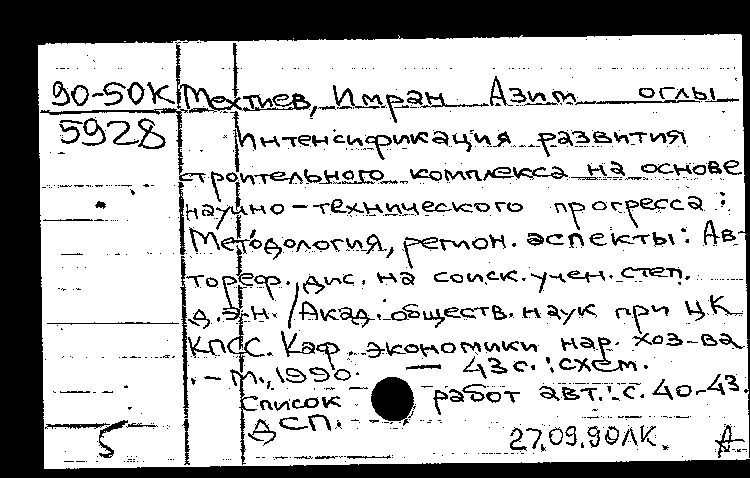 90-50К Мехтиев, Имран Азим оглы
5928 Интенсификация развития
строительного комплекса на основе
научно-технического прогресса :
Методология, регион. аспекты: Ав-
тореф. дис. на соиск. учен. степ.
д.э.н. / Акад. обществ. наук при ЦК
КПСС. Каф. экономики нар. хоз-ва
. - М., 1990. — 43 с. : схем.
Список работ авт.: с. 40-43.
ДСП.
5 27.09.90 ЛК. А